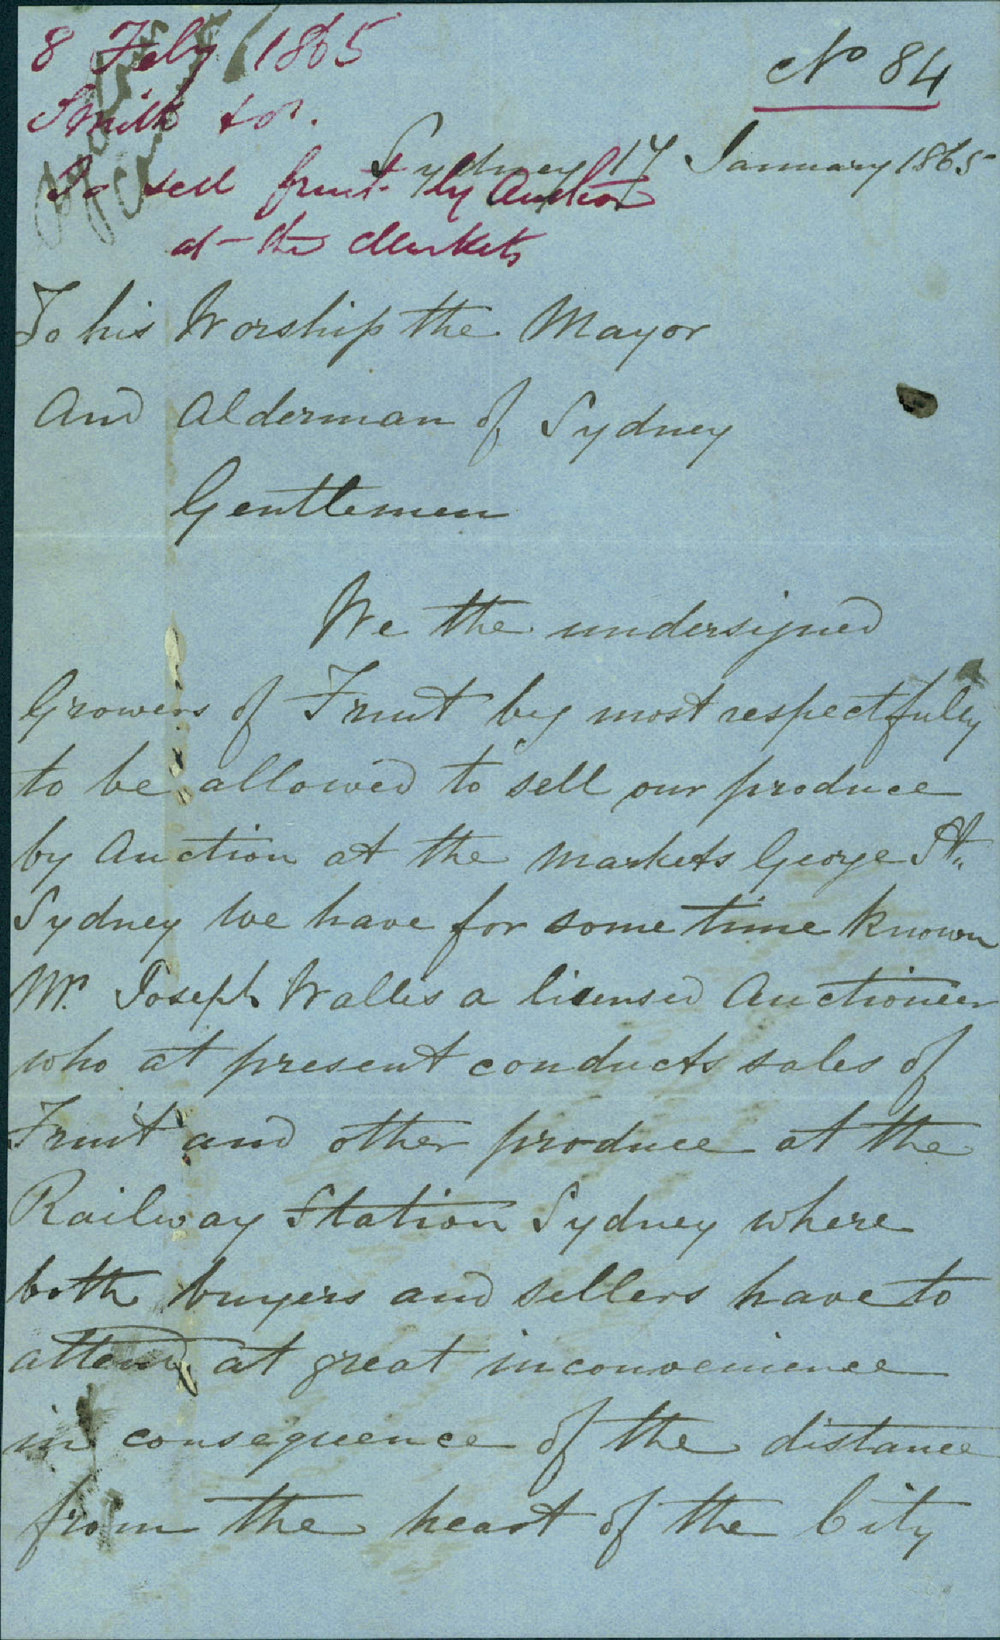 8 Feby 1865
No 84
Smith & or.
Sydney 17 January 1865
To sell fruit by Auction
at the Markets
To his Worship the Mayor
And Alderman of Sydney
Gentlemen
We the undersigned
Growers of Fruit beg most respectfully
to be allowed to sell our produce
by Auction at the Markets George St.
Sydney We have for some time known
Mr. Joseph Walles a licensed Auctioneer
who at present conducts sales of
Fruit and other produce at the
Railway Station Sydney where
both buyers and sellers have to
attend at great inconvenience
in consequence of the distance
from the heart of the City